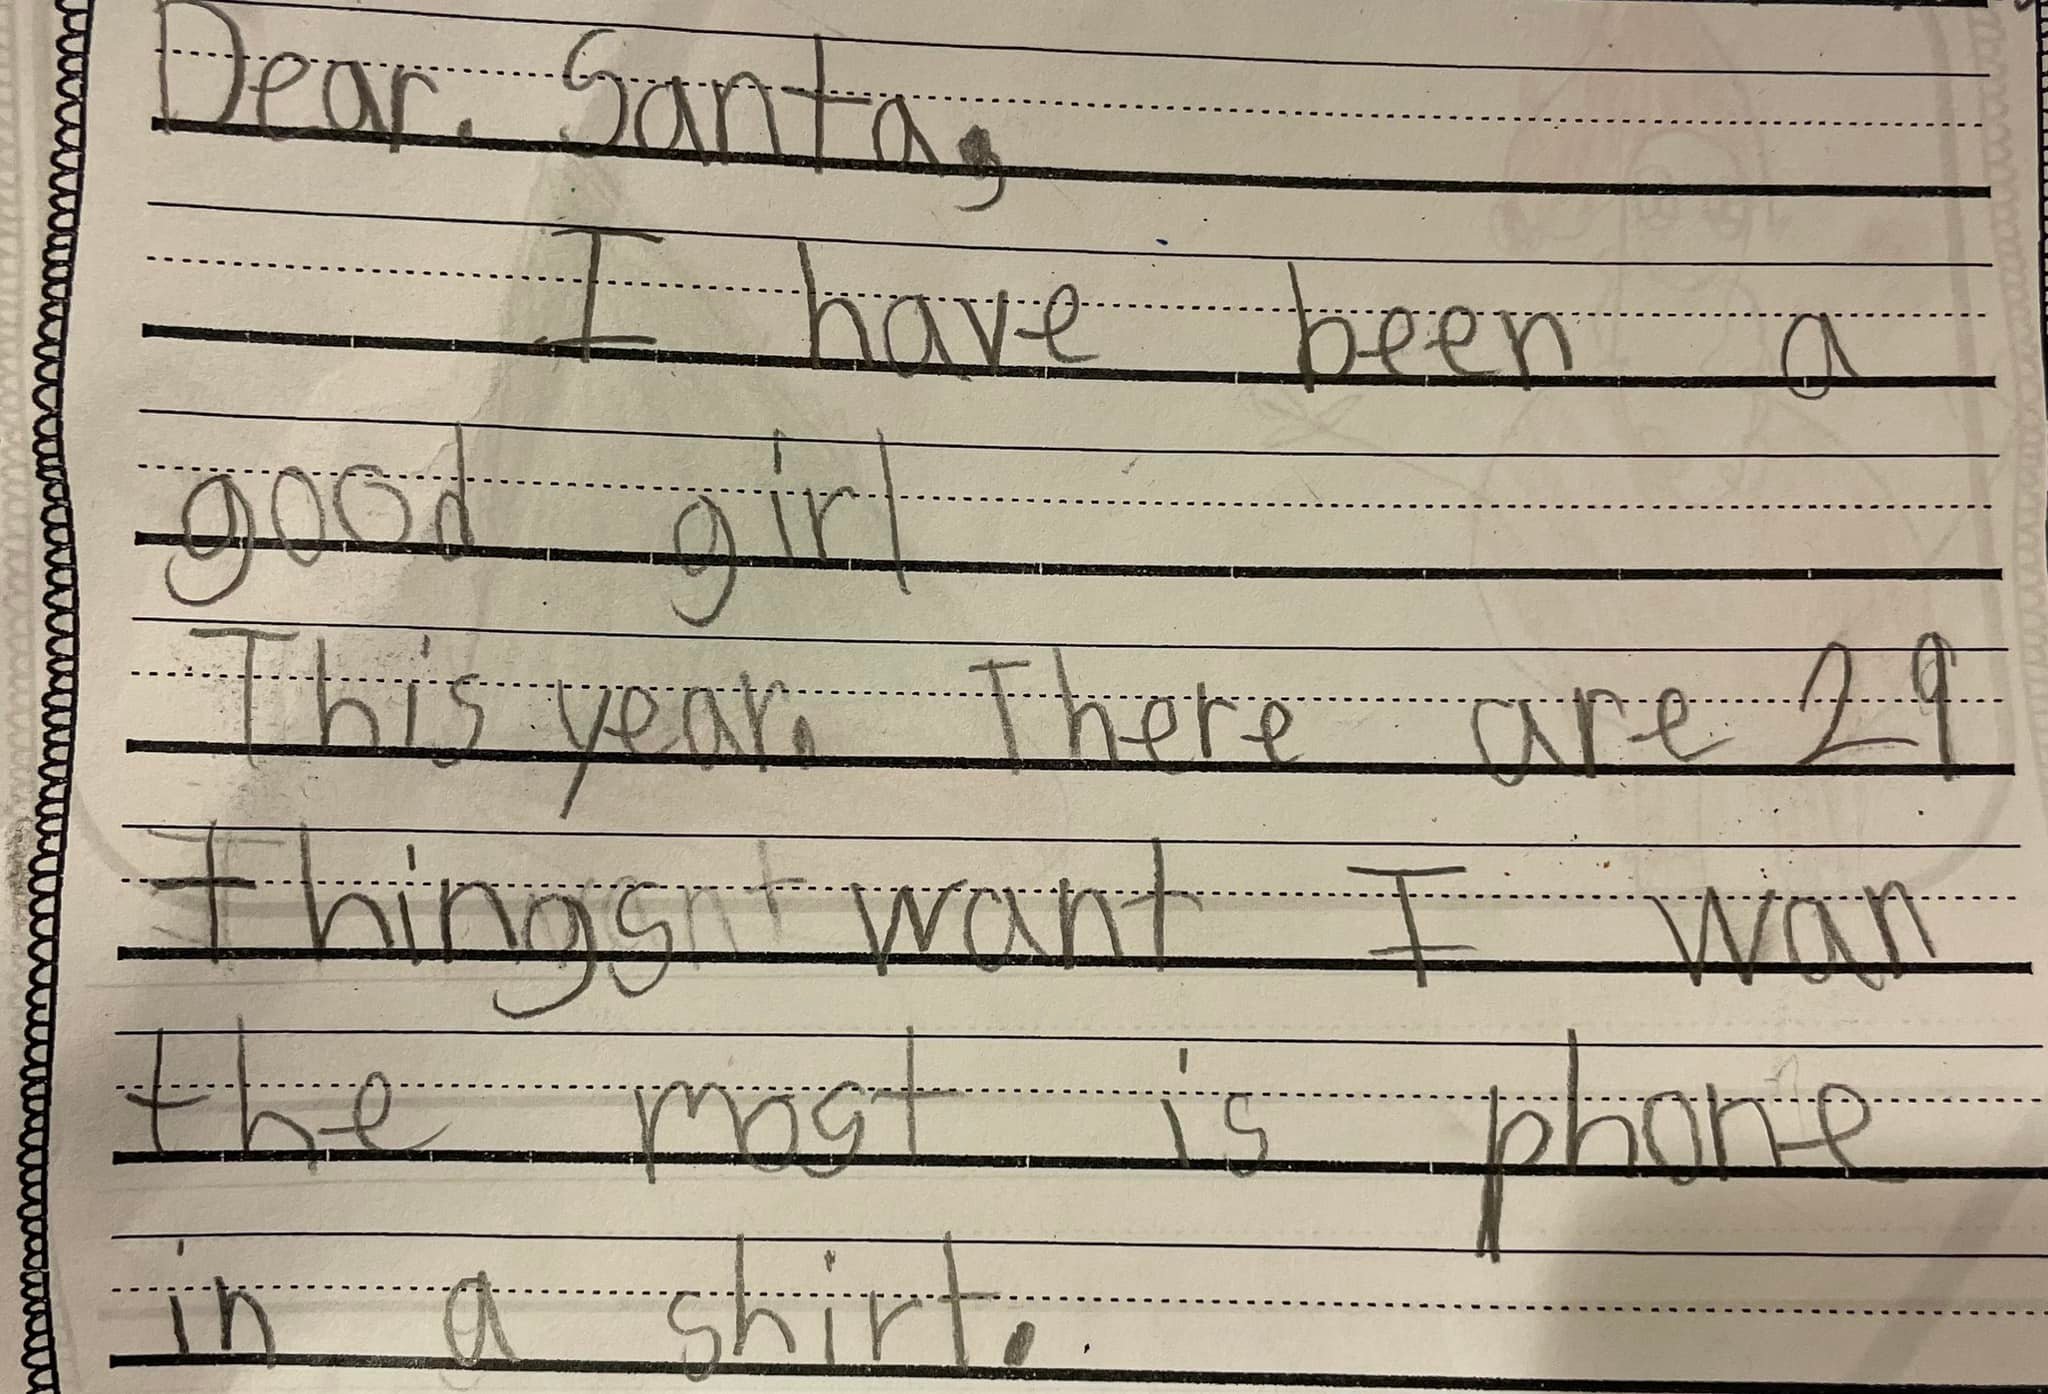 Dear. Santa,
I have been a
good girl
This year. There are 29
things want I wan
the most is phone
in a shirt.